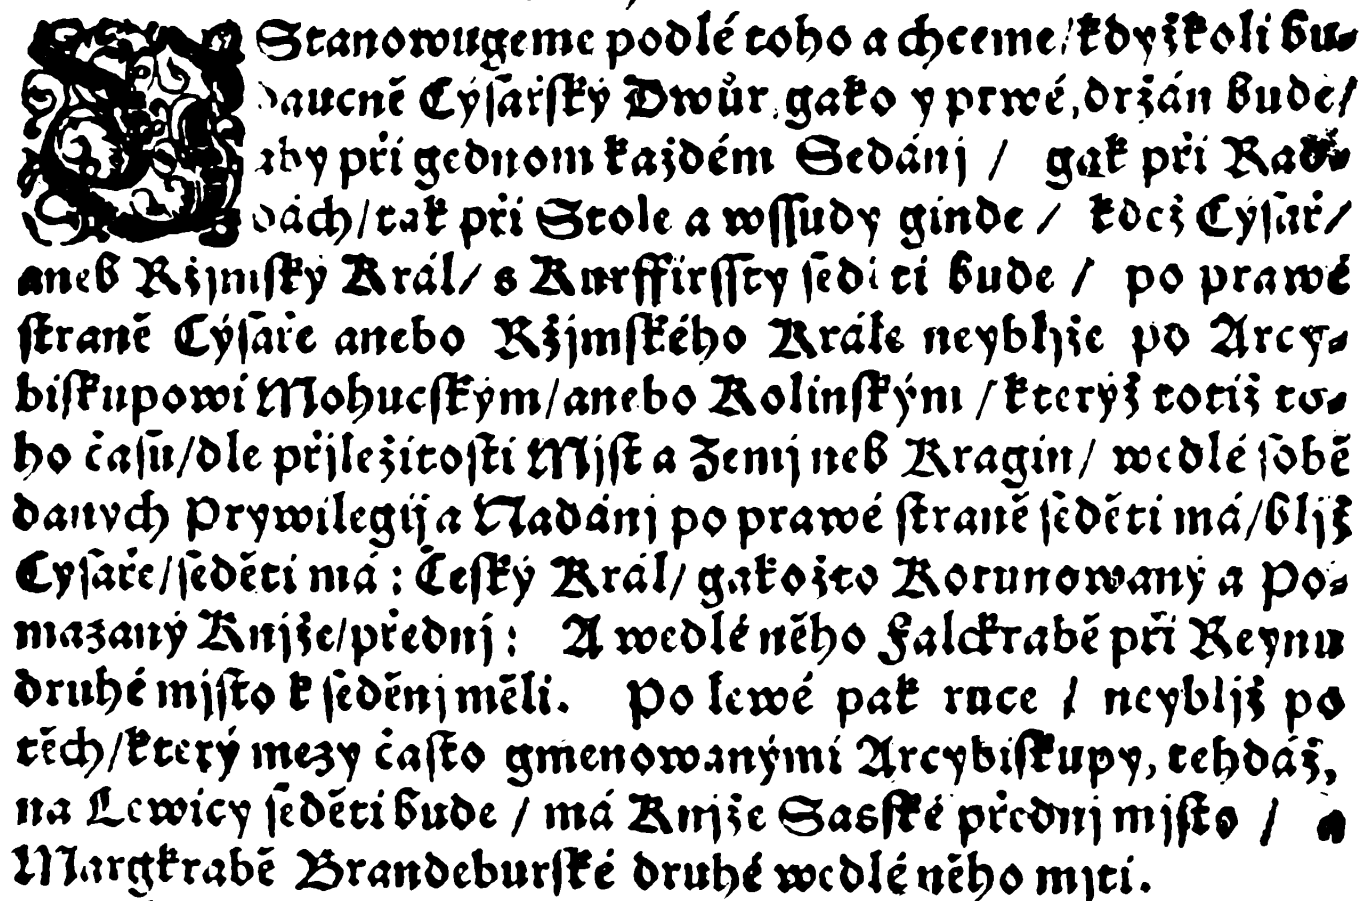 Stanowugeme podlé toho a chceme/kdyžkoli bu-
daucně Cýſařſký Dwůr, gako y prwé, držán bude/
aby při gednom každém Sedánj / gak při Rad-
dách/tak při Stole a wſſudy ginde / kdež Cýſař/
aneb Ržjmſký Král/ s Kurffirſſty ſeděti bude / po prawé
ſtraně Cýſaře anebo Ržjmſkého Krále neyblijže po Arcy-
biſkupowi Mohucſkým/anebo Kolinſkým /kterýž totiž to-
ho čaſu/dle přjležitoſti Mjſt a Zemj neb Kragin/ wedlé ſobě
daných Prywilegij a Nadánj po prawé ſtraně ſeděti má/bljž
Cyſaře/ſeděti má: Český Král/ gakožto Korunowaný a Po-
mazaný Knjže/přednj: A wedlé něho Falckrabě při Reynu
druhé mjſto k ſeděnj měli. Po lewé pak ruce / neybljž po
těch/který mezy čaſto gmenowanými Arcybiſkupy, tehdáž,
na Lewicy ſeděti bude / má Knjže Sasſké přednj mjſto / a
Margkrabě Brandeburſké druhé wedlé něho mjti.